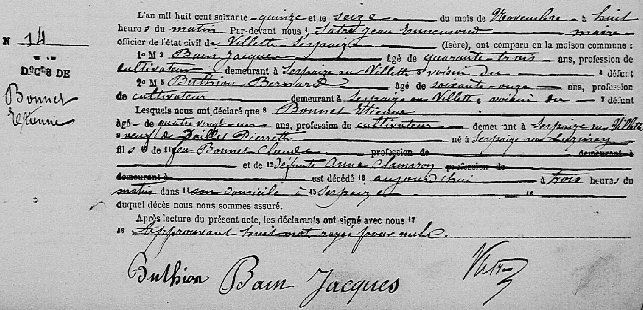 L'an mil huit cent soixante-quinze et le seize du mois de Novembre à huit
heures du matin Par-devant nous Jean Ennemond maire
N° 14
officier de l'état civil de Villette Serpaize (Isère), ont comparu en la maison commune :
1° M Bain Jacques âgé de quarante trois ans, profession de
DÉCÈS DE
cultivateur demeurant à Serpaize en Villette voisin du défunt
Bonnet
2° M Buthion Bernard âgé de soixante onze ans, profession
Etienne
de cultivateur demeurant à Serpaize en Villette, voisin du défunt
Lesquels nous ont déclaré que Bonnet Etienne
âgé de quatre vingt un ans, profession du cultivateur demeurant à Serpaize en
veuf de Pierrette né à Serpaize en
fils de feu Bonnet Claude profession de demeurant à
et de défunte Anne profession de
demeurant à est décédé aujourd'hui à trois heures du
matin dans son domicile à Serpaize
duquel décès nous nous sommes assuré.
Après lecture du présent acte, les déclarants ont signé avec nous
approuvant huit mots rayés pour nuls.
Buthion Bain Jacques